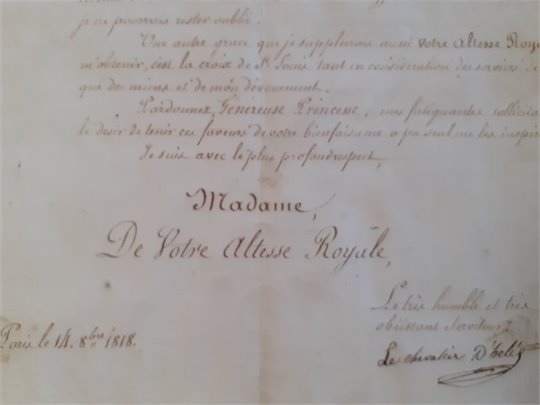 je ne pourrais rester oublié.
Une autre grace que je supplierais aussi Votre Altesse Roya
m'obtenir, c'est la croix de St Louis tant en considération des services de
que des miens et de mon dévouement.
Pardonnez, Généreuse Princesse, mes fatiguantes sollicita
le désir de tenir ces faveurs de votre bienfaisance a pu seul me les inspir
Je suis avec le plus profond respect,
Madame,
De Votre Altesse Royale,
Le très humble et très
obéissant serviteur
Paris le 14. 8bre 1818.
Le chevalier